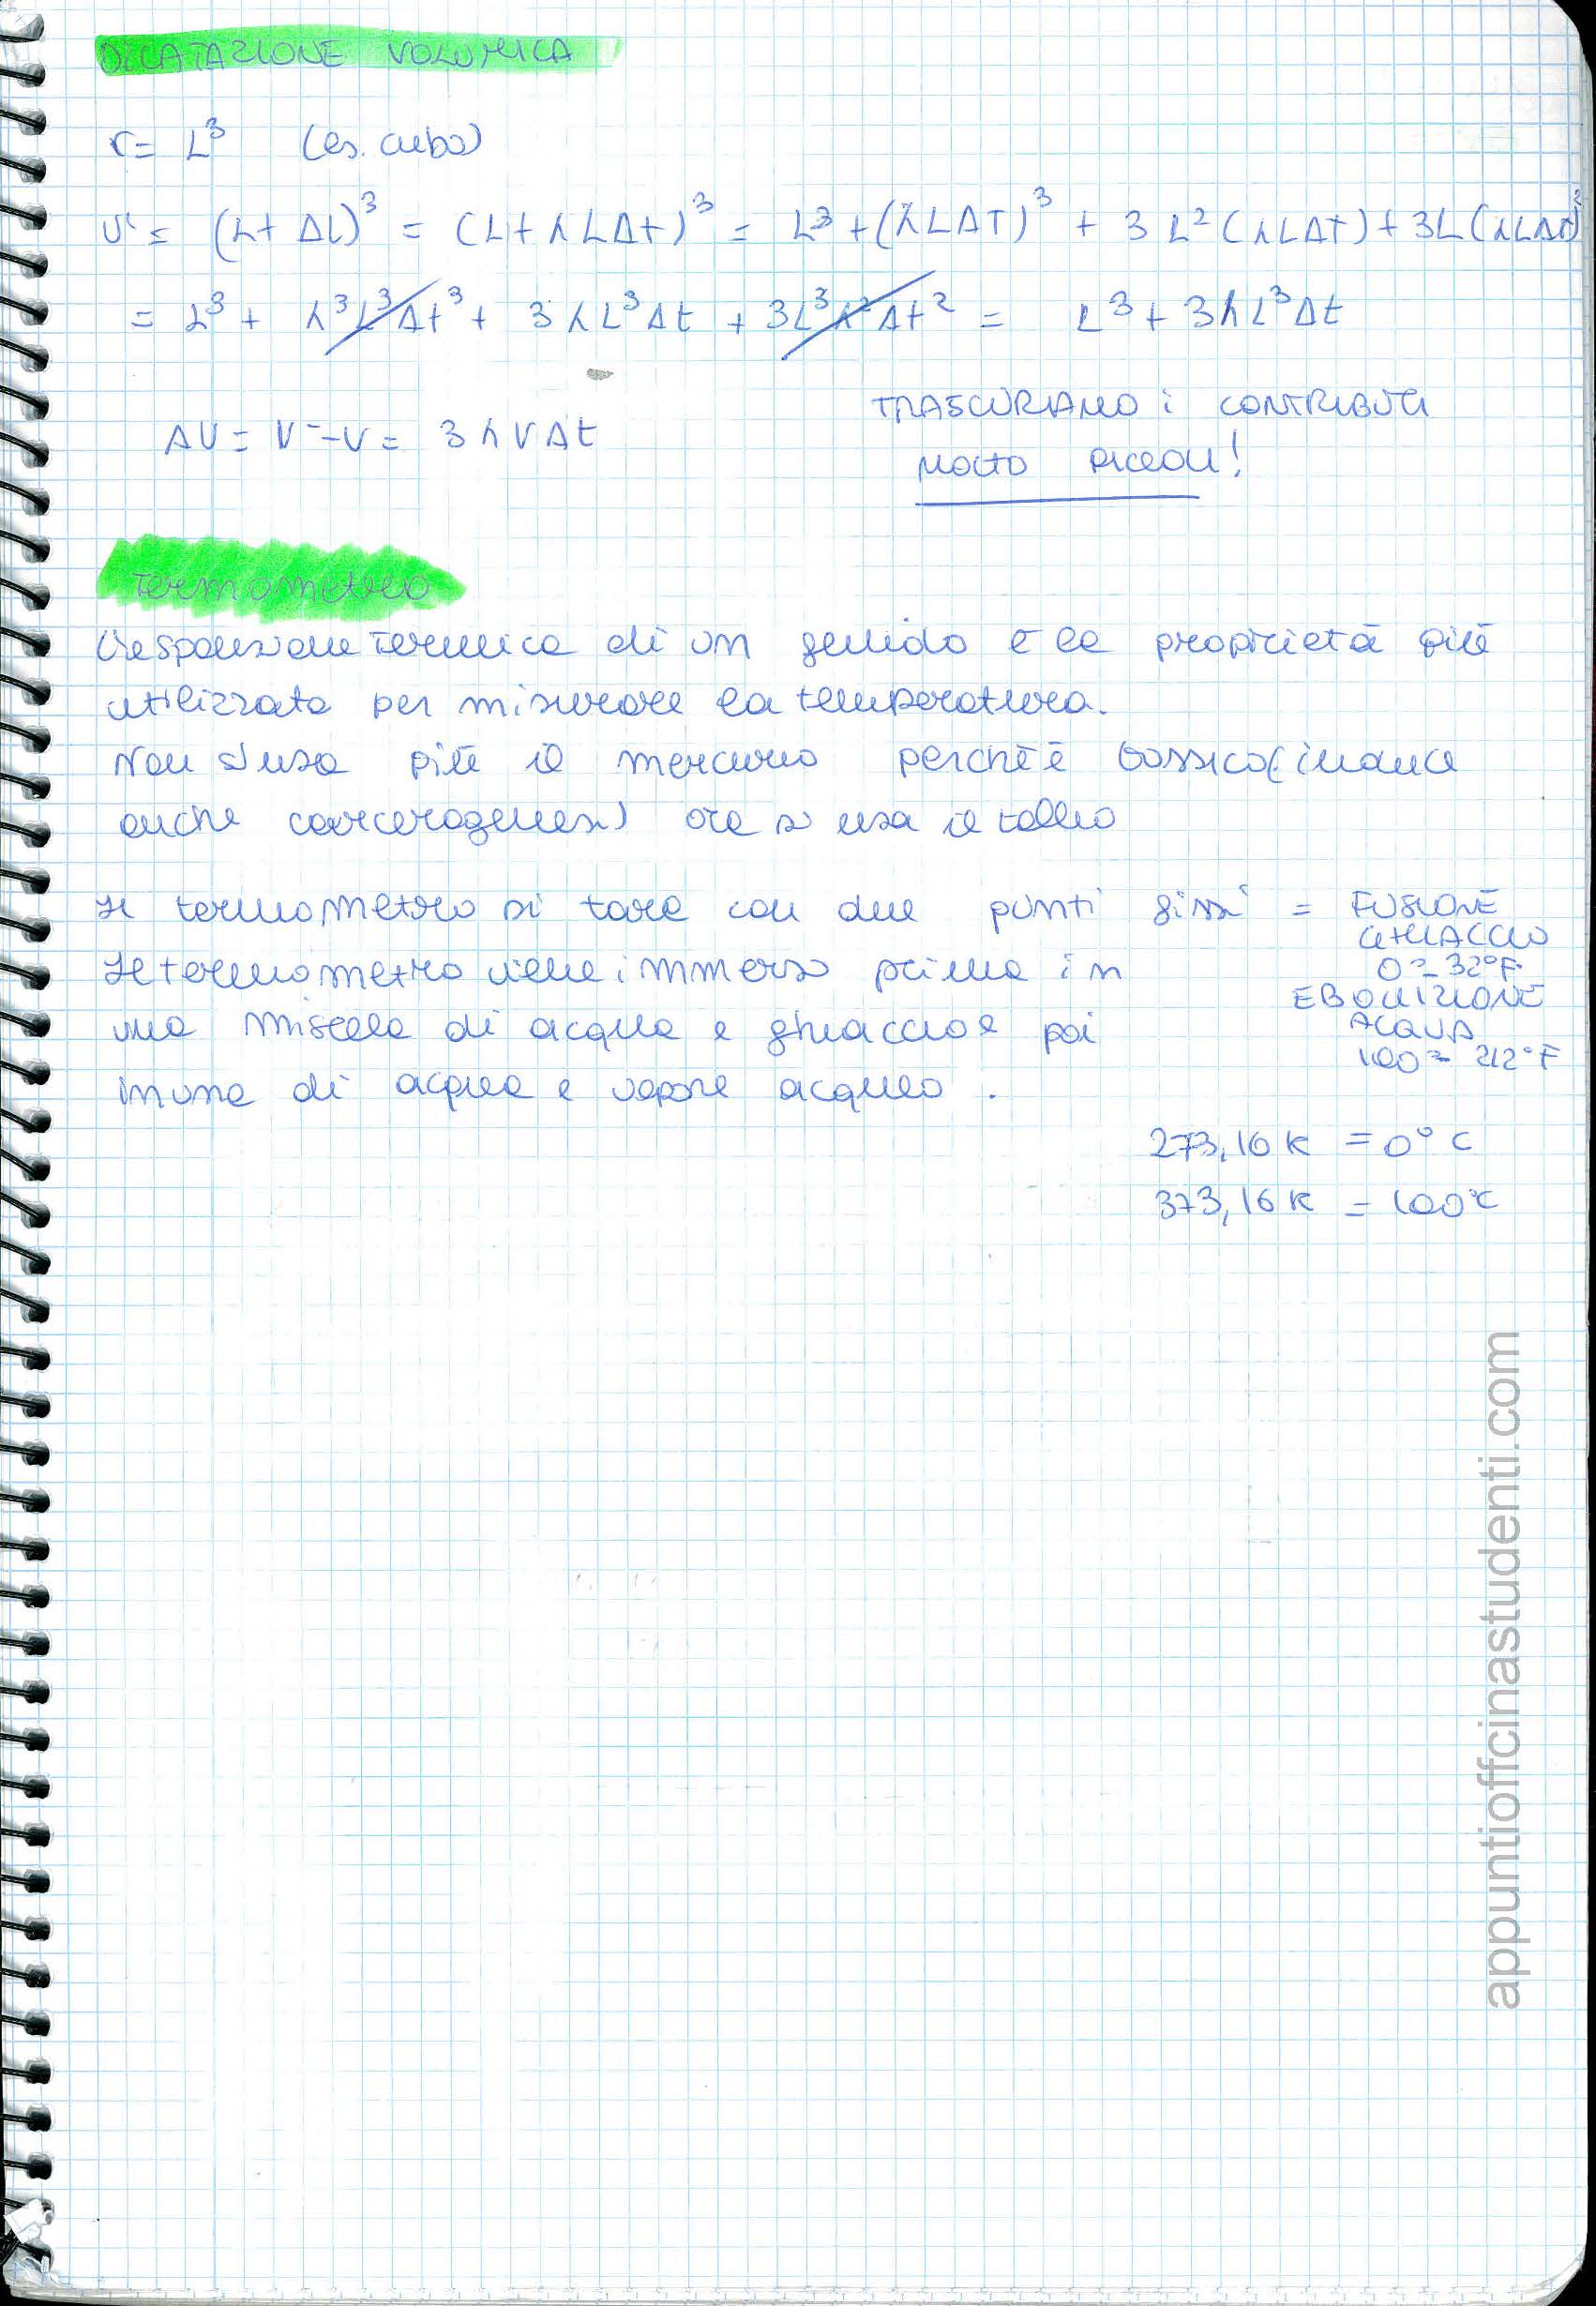 DILATAZIONE VOLUMICA
V = L³ (es. cubo)
V' = (L + ΔL)³ = (L + λLΔt)³ = L³ + (λLΔT)³ + 3L²(λLΔT) + 3L(λLΔT)²
= L³ + λ³L³Δt³ + 3λL³Δt + 3L³λ²Δt² = L³ + 3λL³Δt
TRASCURIAMO i CONTRIBUTI
ΔV = V' - V = 3λVΔt
MOLTO PICCOLI!
Termometro
L'espansione termica di un fluido è la proprietà più
utilizzata per misurare la temperatura.
Non si usa più il mercurio perchè è tossico (induce
anche carcerogenesi) ora si usa il tallio
Il termometro si tara con due punti fissi = FUSIONE
GHIACCIO
0° = 32°F
EBOLLIZIONE
ACQUA
100° = 212°F
Il termometro viene immerso prima in
una miscela di acqua e ghiaccio e poi
in una di acqua e vapore acqueo.
273,16 K = 0°C
373,16 K = 100°C
appuntioffcinastudenti.com